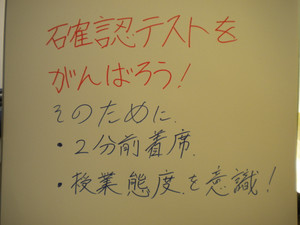 確認テストを
がんばろう!
そのために.
・2分前着席.
・授業態度を意識!